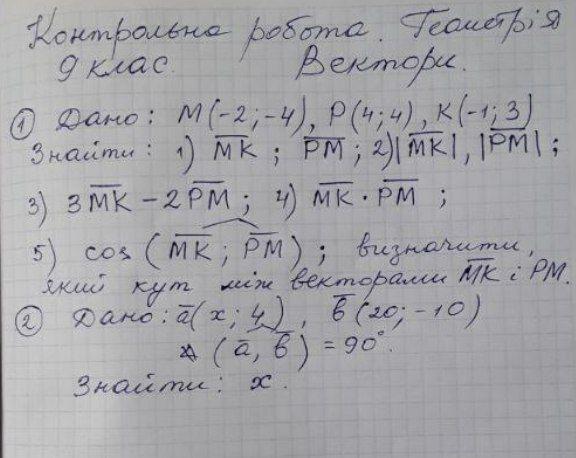 Контрольна робота. Геометрія
9 клас. Вектори.
① Дано: M(-2;-4), P(4;4), K(-1;3)
Знайти: 1) M̅K̅; P̅M̅; 2)|M̅K̅|, |P̅M̅|;
3) 3M̅K̅ - 2P̅M̅; 4) M̅K̅ · P̅M̅;
5) cos (M̅K̅; P̅M̅); визначити,
який кут між векторами M̅K̅ і PM.
② Дано: a̅(x; 4), b̅(20; -10)
∠(a̅, b̅) = 90°.
Знайти: x.